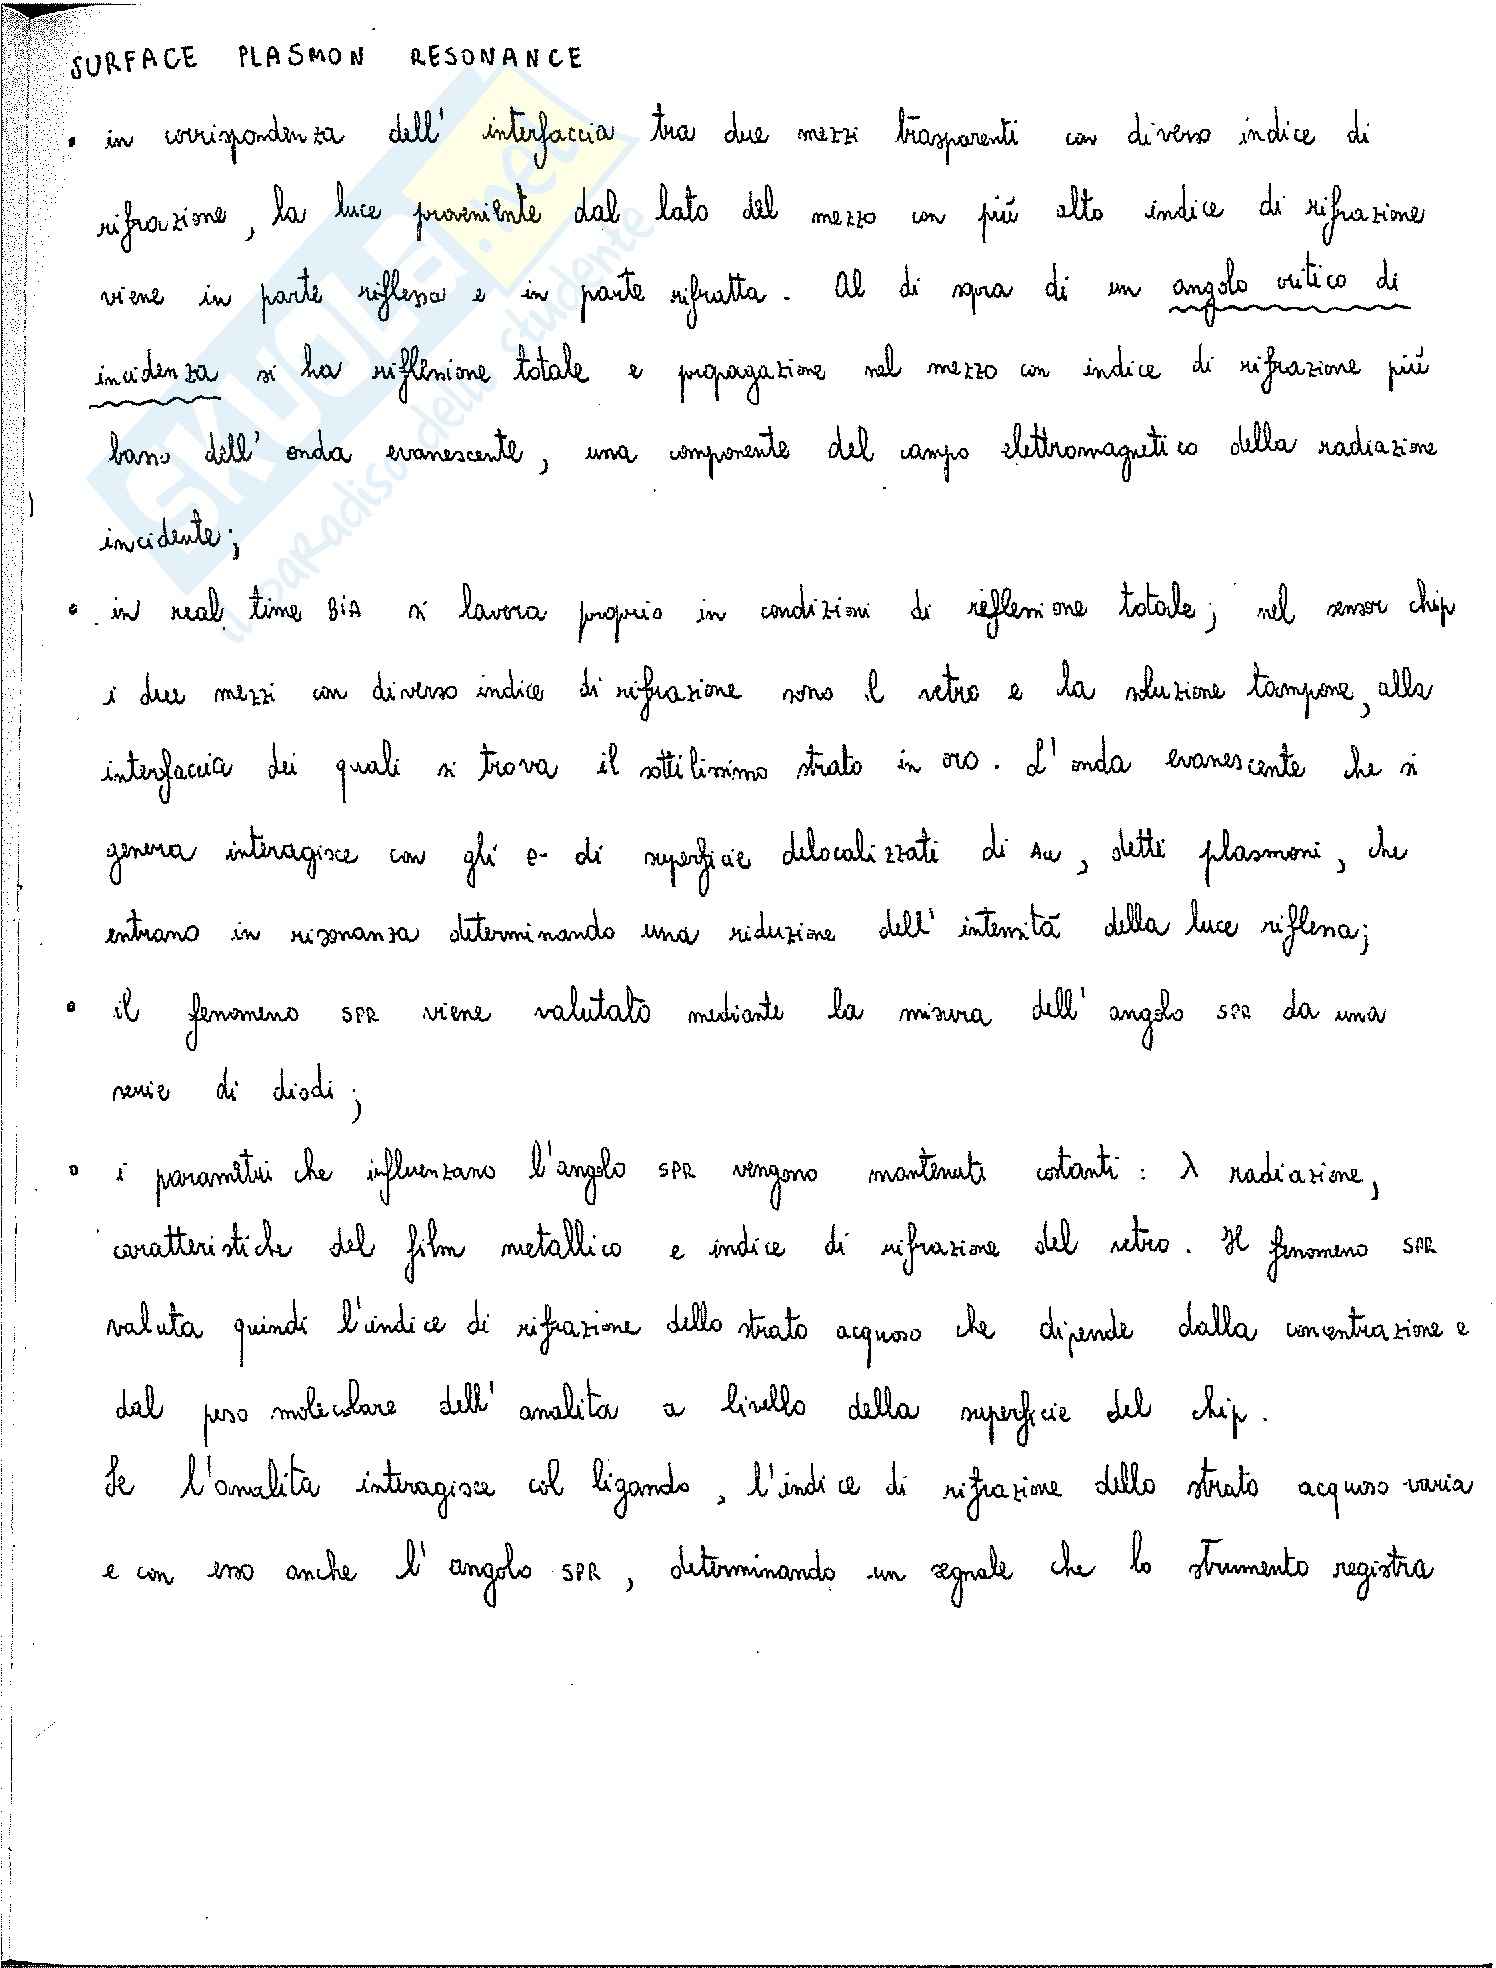 SURFACE PLASMON RESONANCE
• in corrispondenza dell' interfaccia tra due mezzi trasparenti con diverso indice di
rifrazione, la luce proveniente dal lato del mezzo con più alto indice di rifrazione
viene in parte riflessa e in parte rifratta. Al di sopra di un angolo critico di
incidenza si ha riflessione totale e propagazione nel mezzo con indice di rifrazione più
basso dell' onda evanescente, una componente del campo elettromagnetico della radiazione
incidente;
• in real time BIA si lavora proprio in condizioni di riflessione totale; nel sensor chip
i due mezzi con diverso indice di rifrazione sono il vetro e la soluzione tampone, alla
interfaccia dei quali si trova il sottilissimo strato in oro. L' onda evanescente che si
genera interagisce con gli e- di superficie delocalizzati di Au, detti plasmoni, che
entrano in risonanza determinando una riduzione dell' intensità della luce riflessa;
• il fenomeno SPR viene valutato mediante la misura dell' angolo SPR da una
serie di diodi;
• i parametri che influenzano l'angolo SPR vengono mantenuti costanti: λ radiazione,
caratteristiche del film metallico e indice di rifrazione del vetro. Il fenomeno SPR
valuta quindi l'indice di rifrazione dello strato acquoso che dipende dalla concentrazione e
dal peso molecolare dell' analita a livello della superficie del chip.
Se l'analita interagisce col ligando, l'indice di rifrazione dello strato acquoso varia
e con esso anche l' angolo SPR, determinando un segnale che lo strumento registra
SKUOLA.net
il paradiso dello studente